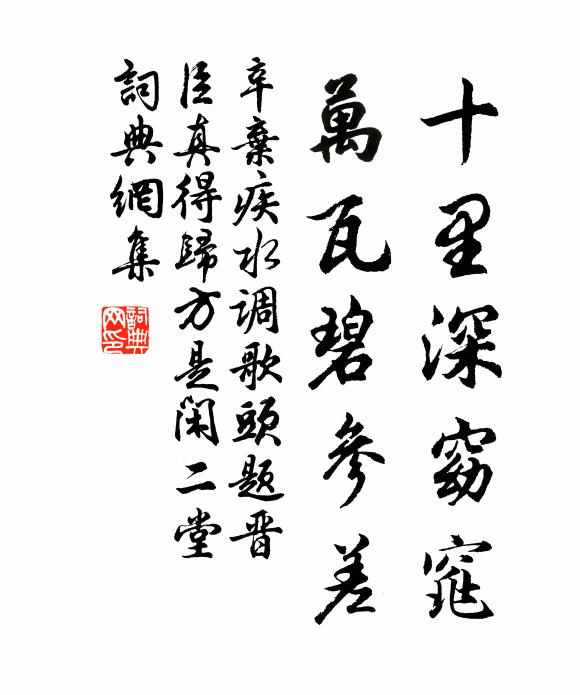 十里深窈窕
萬瓦碧參差
辛棄疾水调歌頭題晋
臣真得歸方是闲二堂
詞典網集
詞典网印